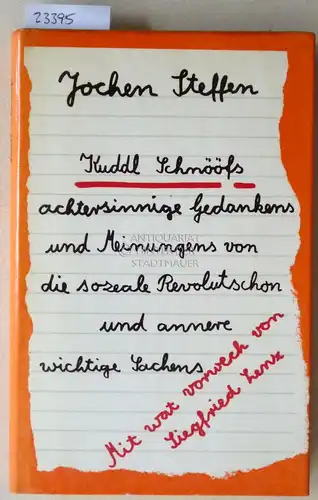 23395
Jochen Steffen
Kuddl Schnööfs
achtersinnige Gedankens
und Meinungens von
die sozeale Revolutschon
und annere
wichtige Sachens
Mit wat vorwech von
Siegfried Lenz
ANTIQUARIAT
STADTMAUER